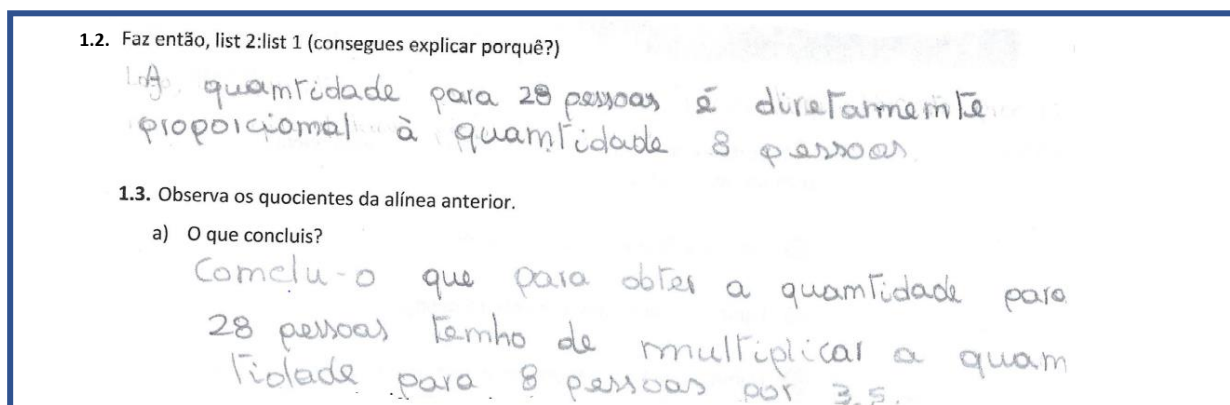 1.2. Faz então, list 2:list 1 (consegues explicar porquê?)
A quantidade para 28 pessoas é diretamente
proporcional à quantidade 8 pessoas.
1.3. Observa os quocientes da alínea anterior.
a) O que concluis?
Conclu-o que para obter a quantidade para
28 pessoas tenho de multiplicar a quan
tidade para 8 pessoas por 3,5.